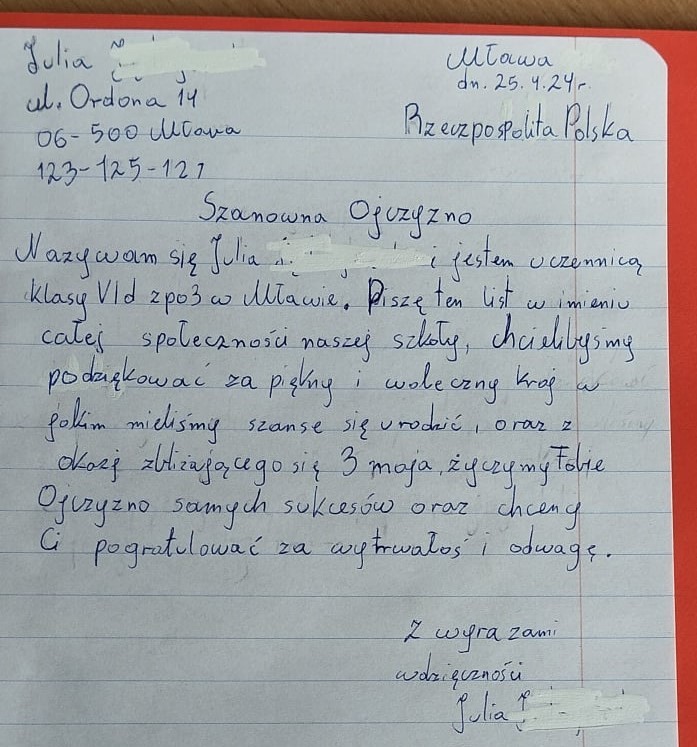 Julia
Mława
dn. 25.4.24r.
ul. Ordona 14
06-500 Mława
Rzeczpospolita Polska
123-125-127
Szanowna Ojczyzno
Nazywam się Julia i jestem uczennicą
klasy VId zpo3 w Mławie. Piszę ten list w imieniu
całej społeczności naszej szkoły, chcielibyśmy
podziękować za piękny i waleczny kraj w
jakim mieliśmy szanse się urodzić, oraz z
okazj zbliżającego się 3 maja, życzymy Tobie
Ojczyzno samych sukcesów oraz chcemy
Ci pogratulować za wytrwałoś i odwagę.
Z wyrazami
wdzięczności
Julia